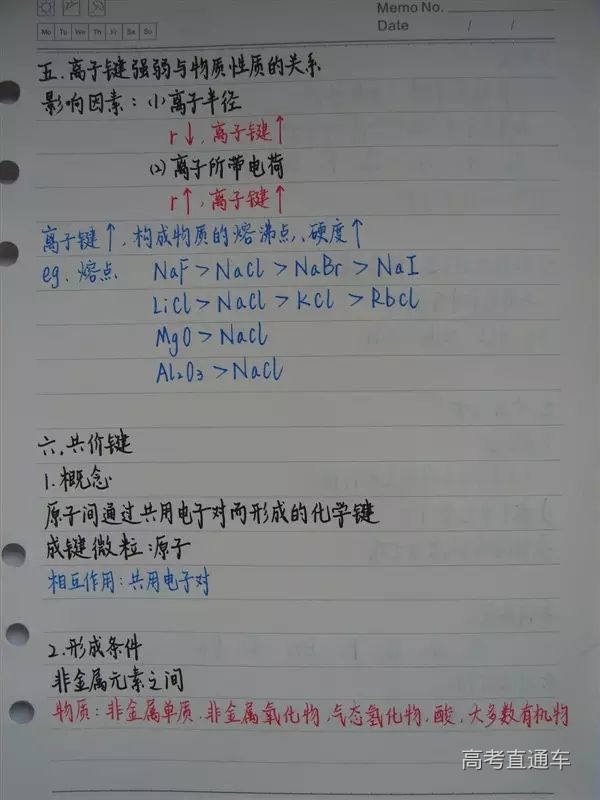 Memo No.
Date / /
Mo Tu We Th Fr Sa Su
五.离子键强弱与物质性质的关系
影响因素：(1)离子半径
r↓,离子键↑
(2)离子所带电荷
r↑,离子键↑
离子键↑,构成物质的熔沸点、硬度↑
eg.熔点 NaF>NaCl>NaBr>NaI
LiCl>NaCl>KCl>RbCl
MgO>NaCl
Al₂O₃>NaCl
六.共价键
1.概念
原子间通过共用电子对而形成的化学键
成键微粒:原子
相互作用:共用电子对
2.形成条件
非金属元素之间
物质:非金属单质.非金属氧化物,气态氢化物,酸,大多数有机物
高考直通车